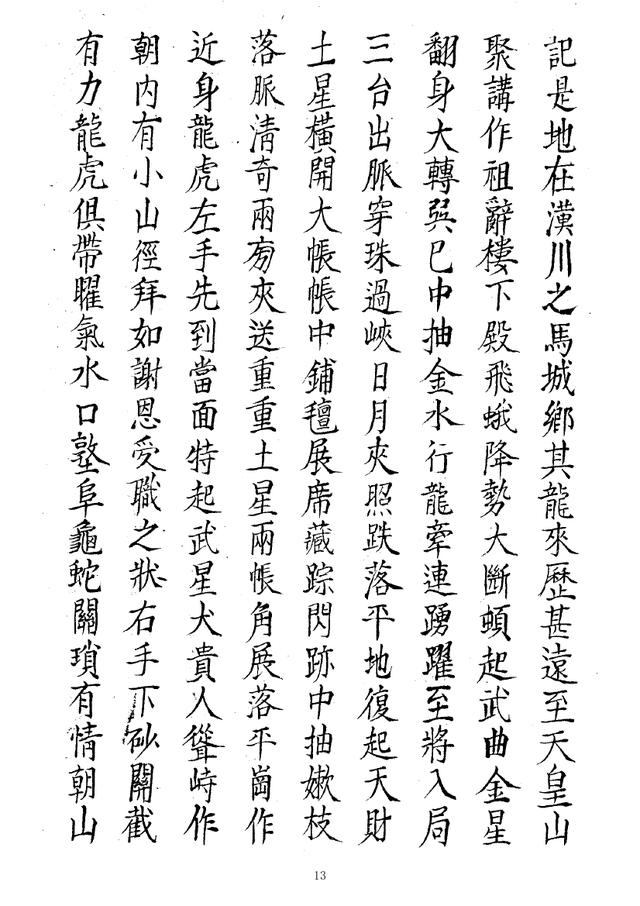 記是地在漢川之馬城鄉其龍來歷甚遠至天皇山
聚講作祖辭樓下殿飛蛾降勢大斷頓起武曲金星
翻身大轉巽巳中抽金水行龍牽連踴躍至將入局
三台出脈穿珠過峽日月夾照跌落平地復起天財
土星橫開大帳帳中鋪氊展席藏踪閃跡中抽嫰枝
落脈清奇兩旁夾送重重土星兩帳角展落平崗作
近身龍虎左手先到當面特起武星犬貴人聳峙作
朝內有小山徑拜如謝恩受職之狀右手下砂關截
有力龍虎俱帶曜氣水口墪阜龜蛇關瑣有情朝山
13